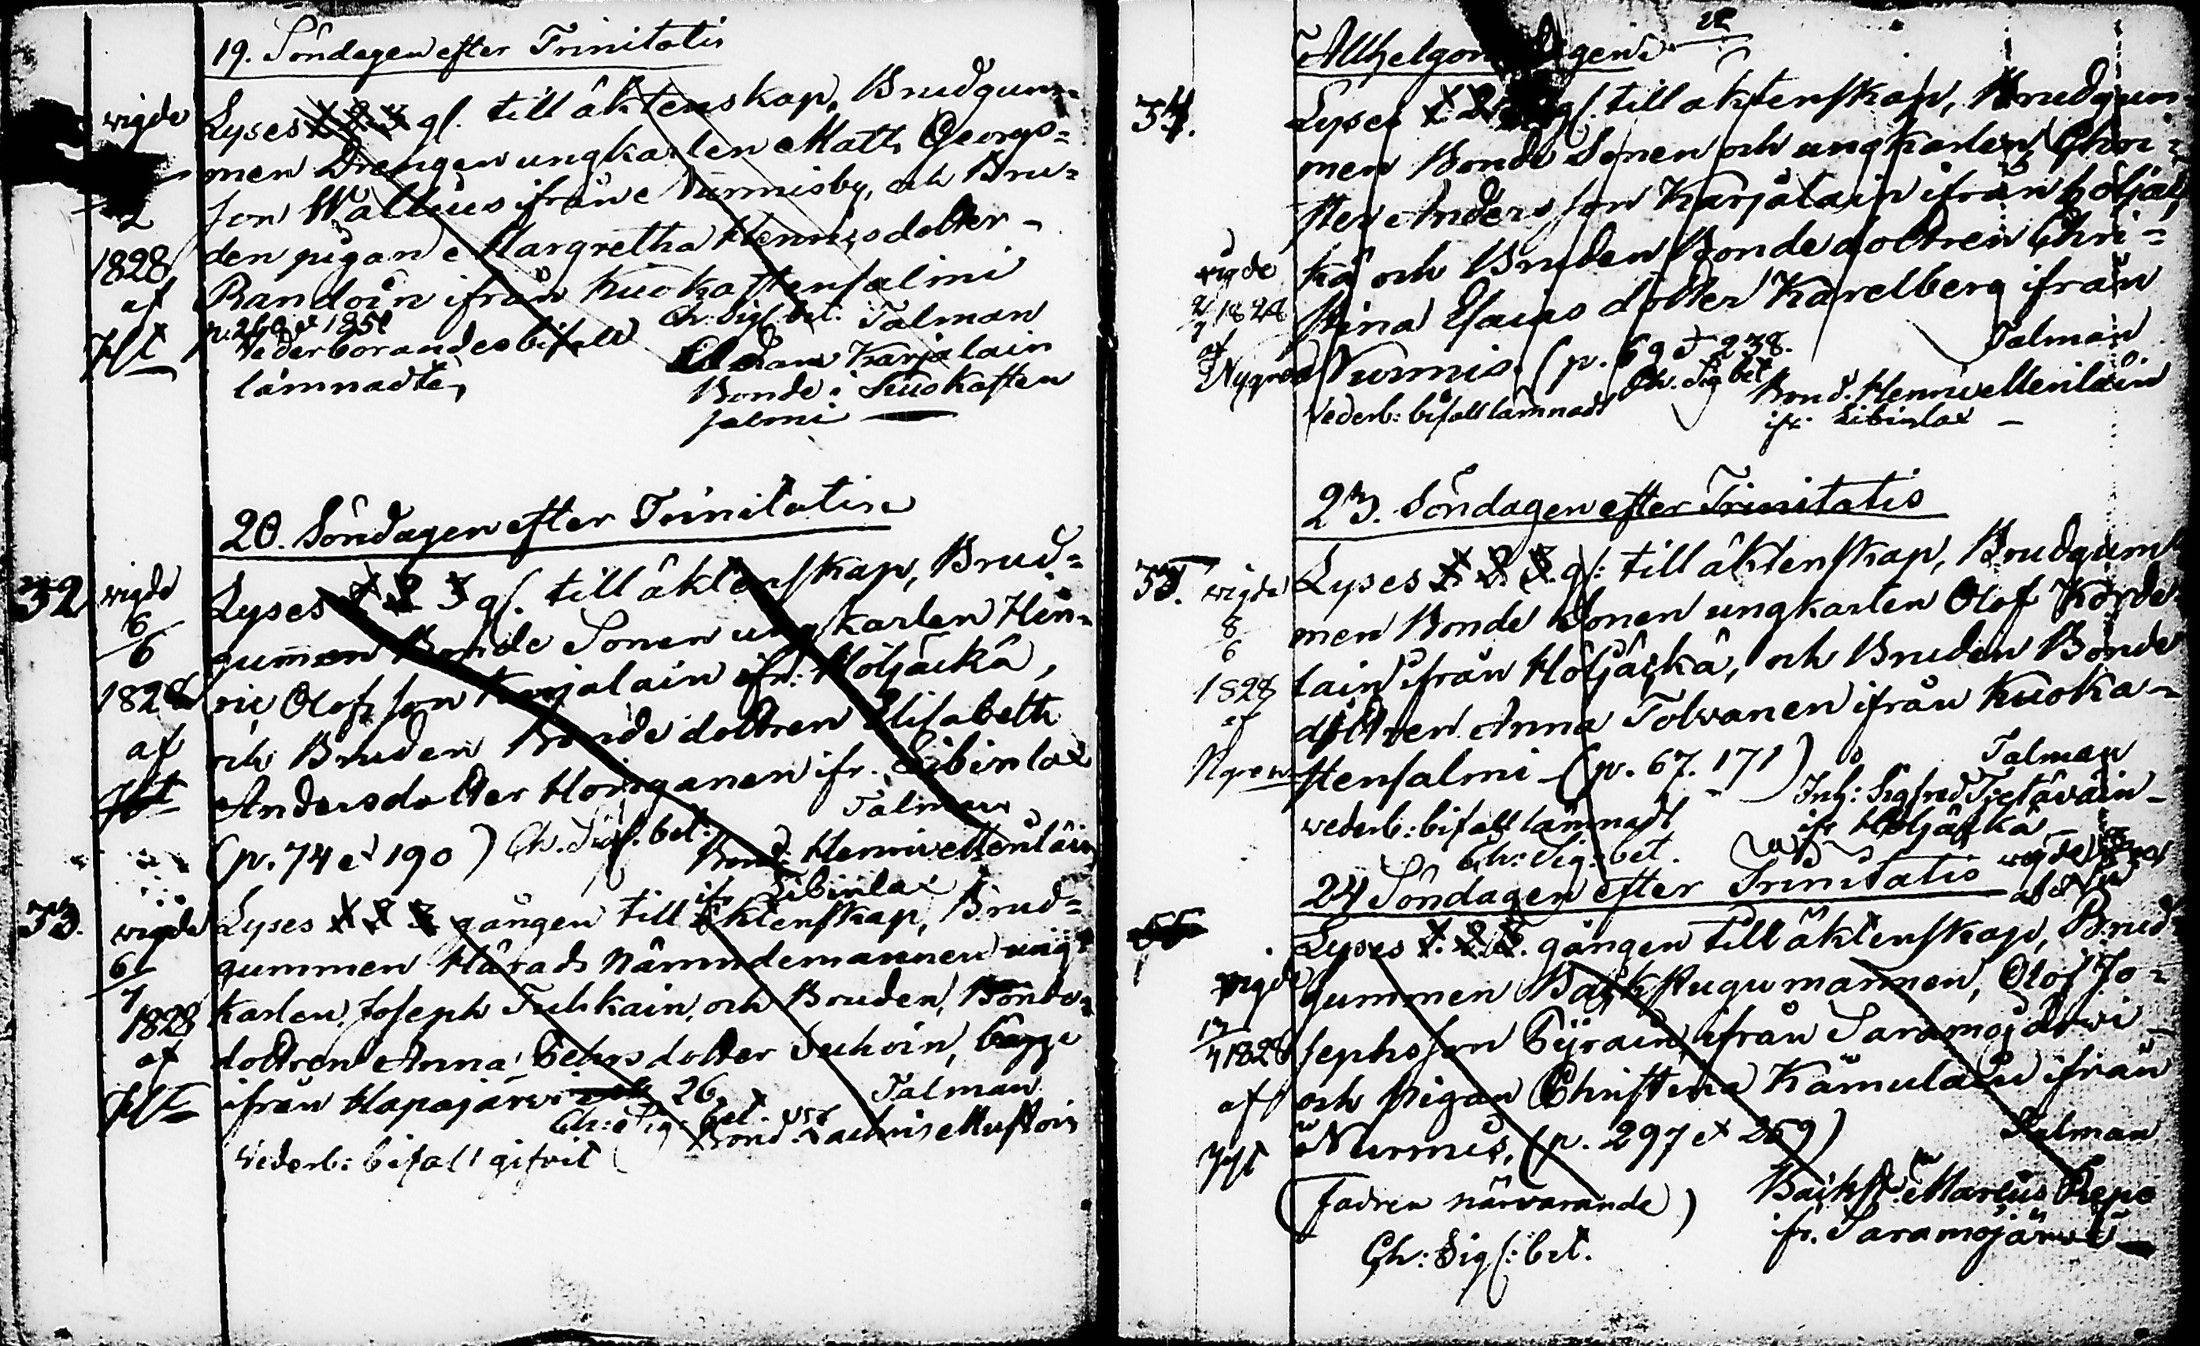 19. Söndagen efter Trinitatis
wigde
Lyses 1 2 3 gl. till äktenskap, Brudgum=
men Drengen ungkarlen Matts Georgs=
son Wallius ifrån Nurmisby, och Bru=
2
1828
den pigan Margretha Hennicsdotter
af
Randoin ifrån Kuokastensalmi
p. 268 et 1851 Ch. Sigl. bet. Talman
Vederbörandes bifall Adam Karjalain
lämnadt Bonde i Kuokasten
salmi
20. Söndagen efter Trinitatis
32 wigde
6/6
1828
af
Lyses 1 2 3 gl. till äktenskap, Brud=
gummen Bonde Sonen ungkarlen Hen=
ric Olofsson Karjalain ifr: Höljäckä,
och Bruden Bonde dottren Elisabeth
Andersdotter Horrganen ifr. Libinlax
(p. 74 et 190) Ch. Sigl. bet. Talman
Bond. Henric Meriläin
ifr Libinlax
33. wigde
6/7
1828
af
Lyses 1 2 3 gången till äktenskap, Brud=
gummen Härads Nämndemannen ung=
karlen Joseph Tuhkain, och Bruden, Bonde=
dottren Anna Pehrsdotter Juhoin, bägge
ifrån Hapajärwi 26 Talman
Ch: Sig. bet. Bond. Lachris Mustoin
Vederb: bifall gifvit
Allhelgona Dagen
34. wigde
2/7 1828
af
Nygren
Lyses 1. 2. gl. till äktenskap, Brudgum=
men Bonde Sonen och ungkarlen Chri=
ster Andersson Karjalain ifrån Höljäc
kä och Bruden Bonde dottren Chri=
stina Esaias dotter Karelberg ifrån
Nurmis. (p. 69 et 238. Talman
Vederb: bifall lämnadt Ch. Sig bet Bond. Henric Meriläin
ifr. Libinlax
23. Söndagen efter Trinitatis
35. wigde
8/6
1828
af
Ngren
Lyses 1. 2. 3. gl: till äktenskap, Brudgum
men Bonde Sonen ungkarlen Olof Korde
lain ifrån Höljäckä, och Bruden Bonde
dottren Anna Tolvanen ifrån Kuoka=
stensalmi (p. 67. 171) Talman
Inh: Sigfred Tietäväin
wederb: bifall lämnadt ifr Höljäckä
Ch: Sig: bet.
24 Söndagen efter Trinitatis
wigde
17/4 1828
af
Lyses 1. 2. 3. gången till äktenskap, Brud
gummen Backstugumannen, Olof Jo=
sephsson Pyrain, ifrån Saramojärwi
och Pigan Christina Kämuläin ifrån
Nurmis, (p. 297 et 269) Talman
(Fadren närvarande) Backst Marcus Repo
Ch: Sigl: bet. ifr. Saramojärwi